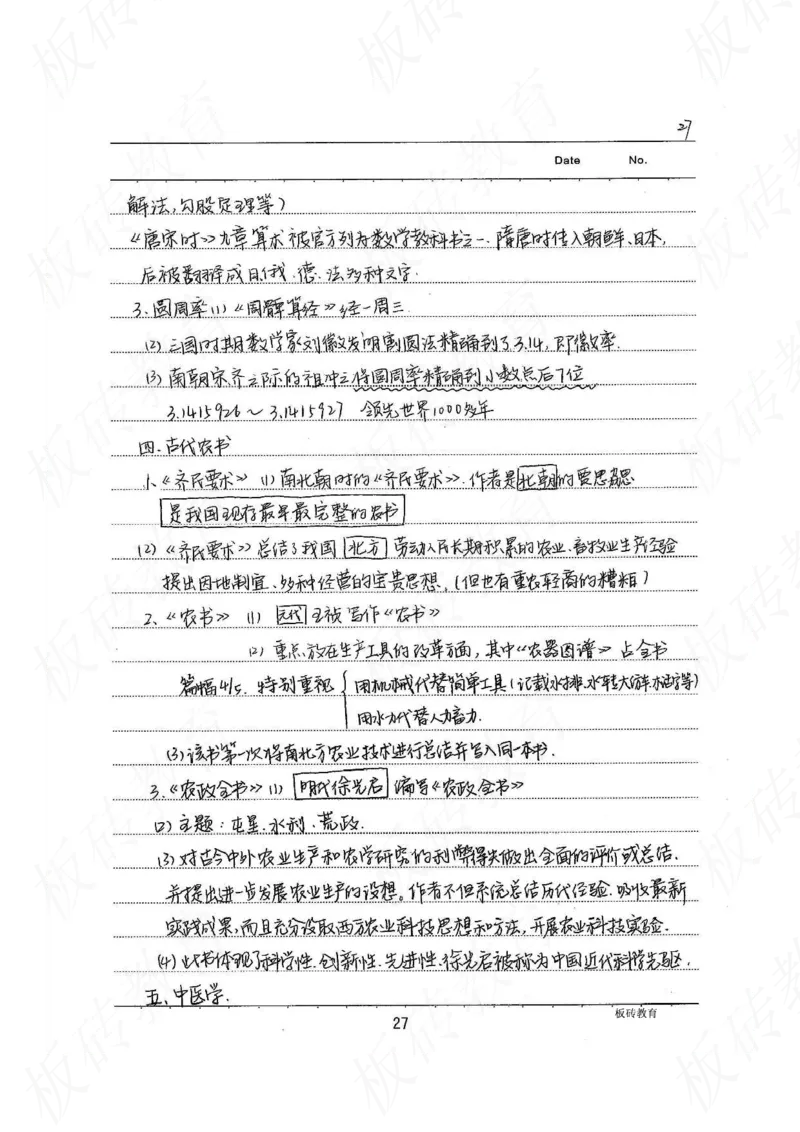 27
Date No.
解法,勾股定理等)
《唐宋时》九章算术被官方列为数学教科书之一.隋唐时传入朝鲜、日本,
后被翻译成日俄.德.法多种文字.
3.圆周率(1)《周髀算经》径一周三
(2)三国时期数学家刘徽发明割圆法精确到了3.14,即徽率.
(3)南朝宋齐之际的祖冲之将圆周率精确到小数点后7位
3.1415926~3.1415927 领先世界1000多年
四.古代农书
1、《齐民要术》(1)南北朝时的《齐民要术》.作者是北朝的贾思勰
是我国现存最早最完整的农书
(2)《齐民要术》总结了我国北方劳动人民长期积累的农业、畜牧业生产经验
提出因地制宜、多种经营的宝贵思想.(但也有重农轻商的糟粕)
2、《农书》(1)元代王祯写作《农书》
(2)重点放在生产工具的改革方面,其中《农器图谱》占全书
篇幅4/5.特别重视 用机械代替简单工具(记载水排.水转大纺车.水磨等)
用水力代替人力畜力.
(3)该书第一次将南北方农业技术进行总结并写入同一本书.
3.《农政全书》(1)明代徐光启编写《农政全书》
(2)主题:屯垦.水利.荒政.
(3)对古今中外农业生产和农学研究的利弊得失做出全面的评价或总结.
并提出进一步发展农业生产的设想。作者不但系统总结历代经验.吸收最新
实践成果,而且充分汲取西方农业科技思想和方法,开展农业科技实验.
(4)此书体现了科学性.创新性.先进性.徐光启被称为中国近代科学先驱.
五.中医学.
板砖教育
27